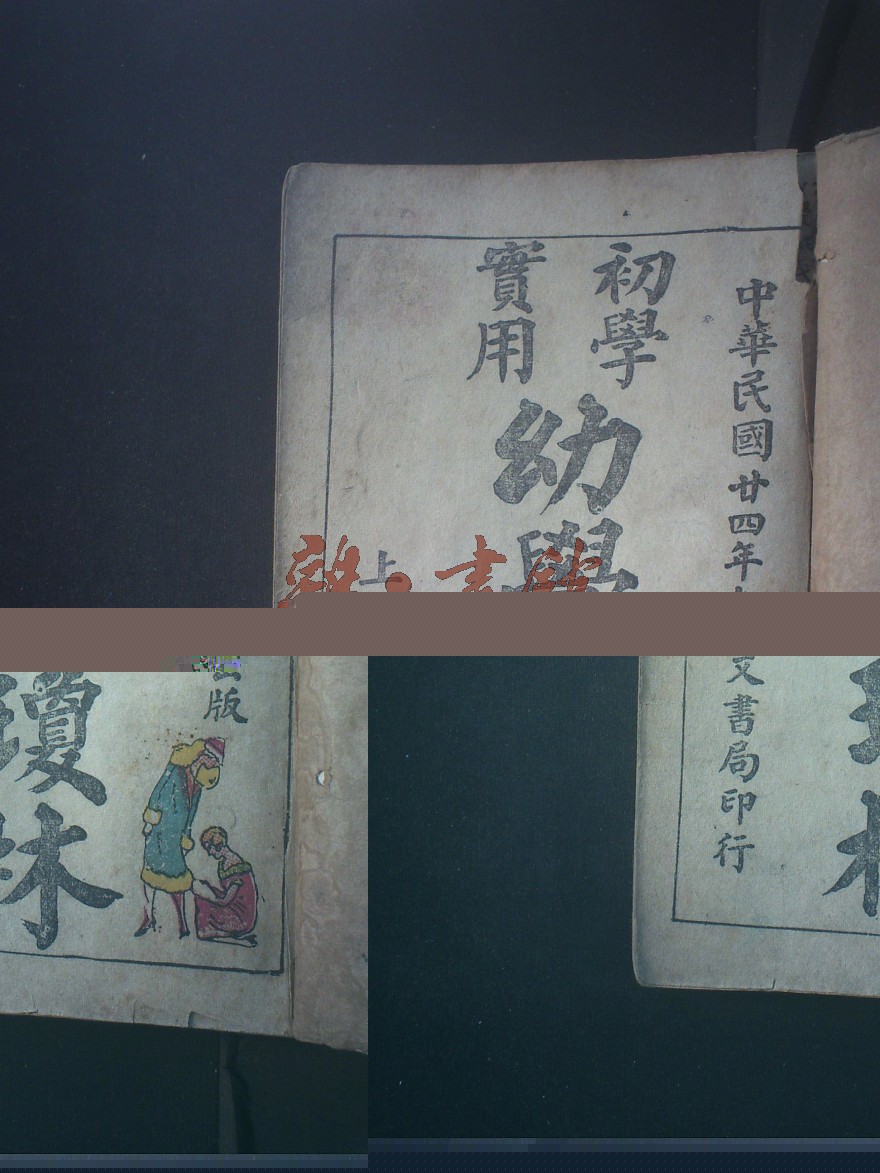 中華民國廿四年
初學
實用
幼學
上
版
瓊林
書局印行